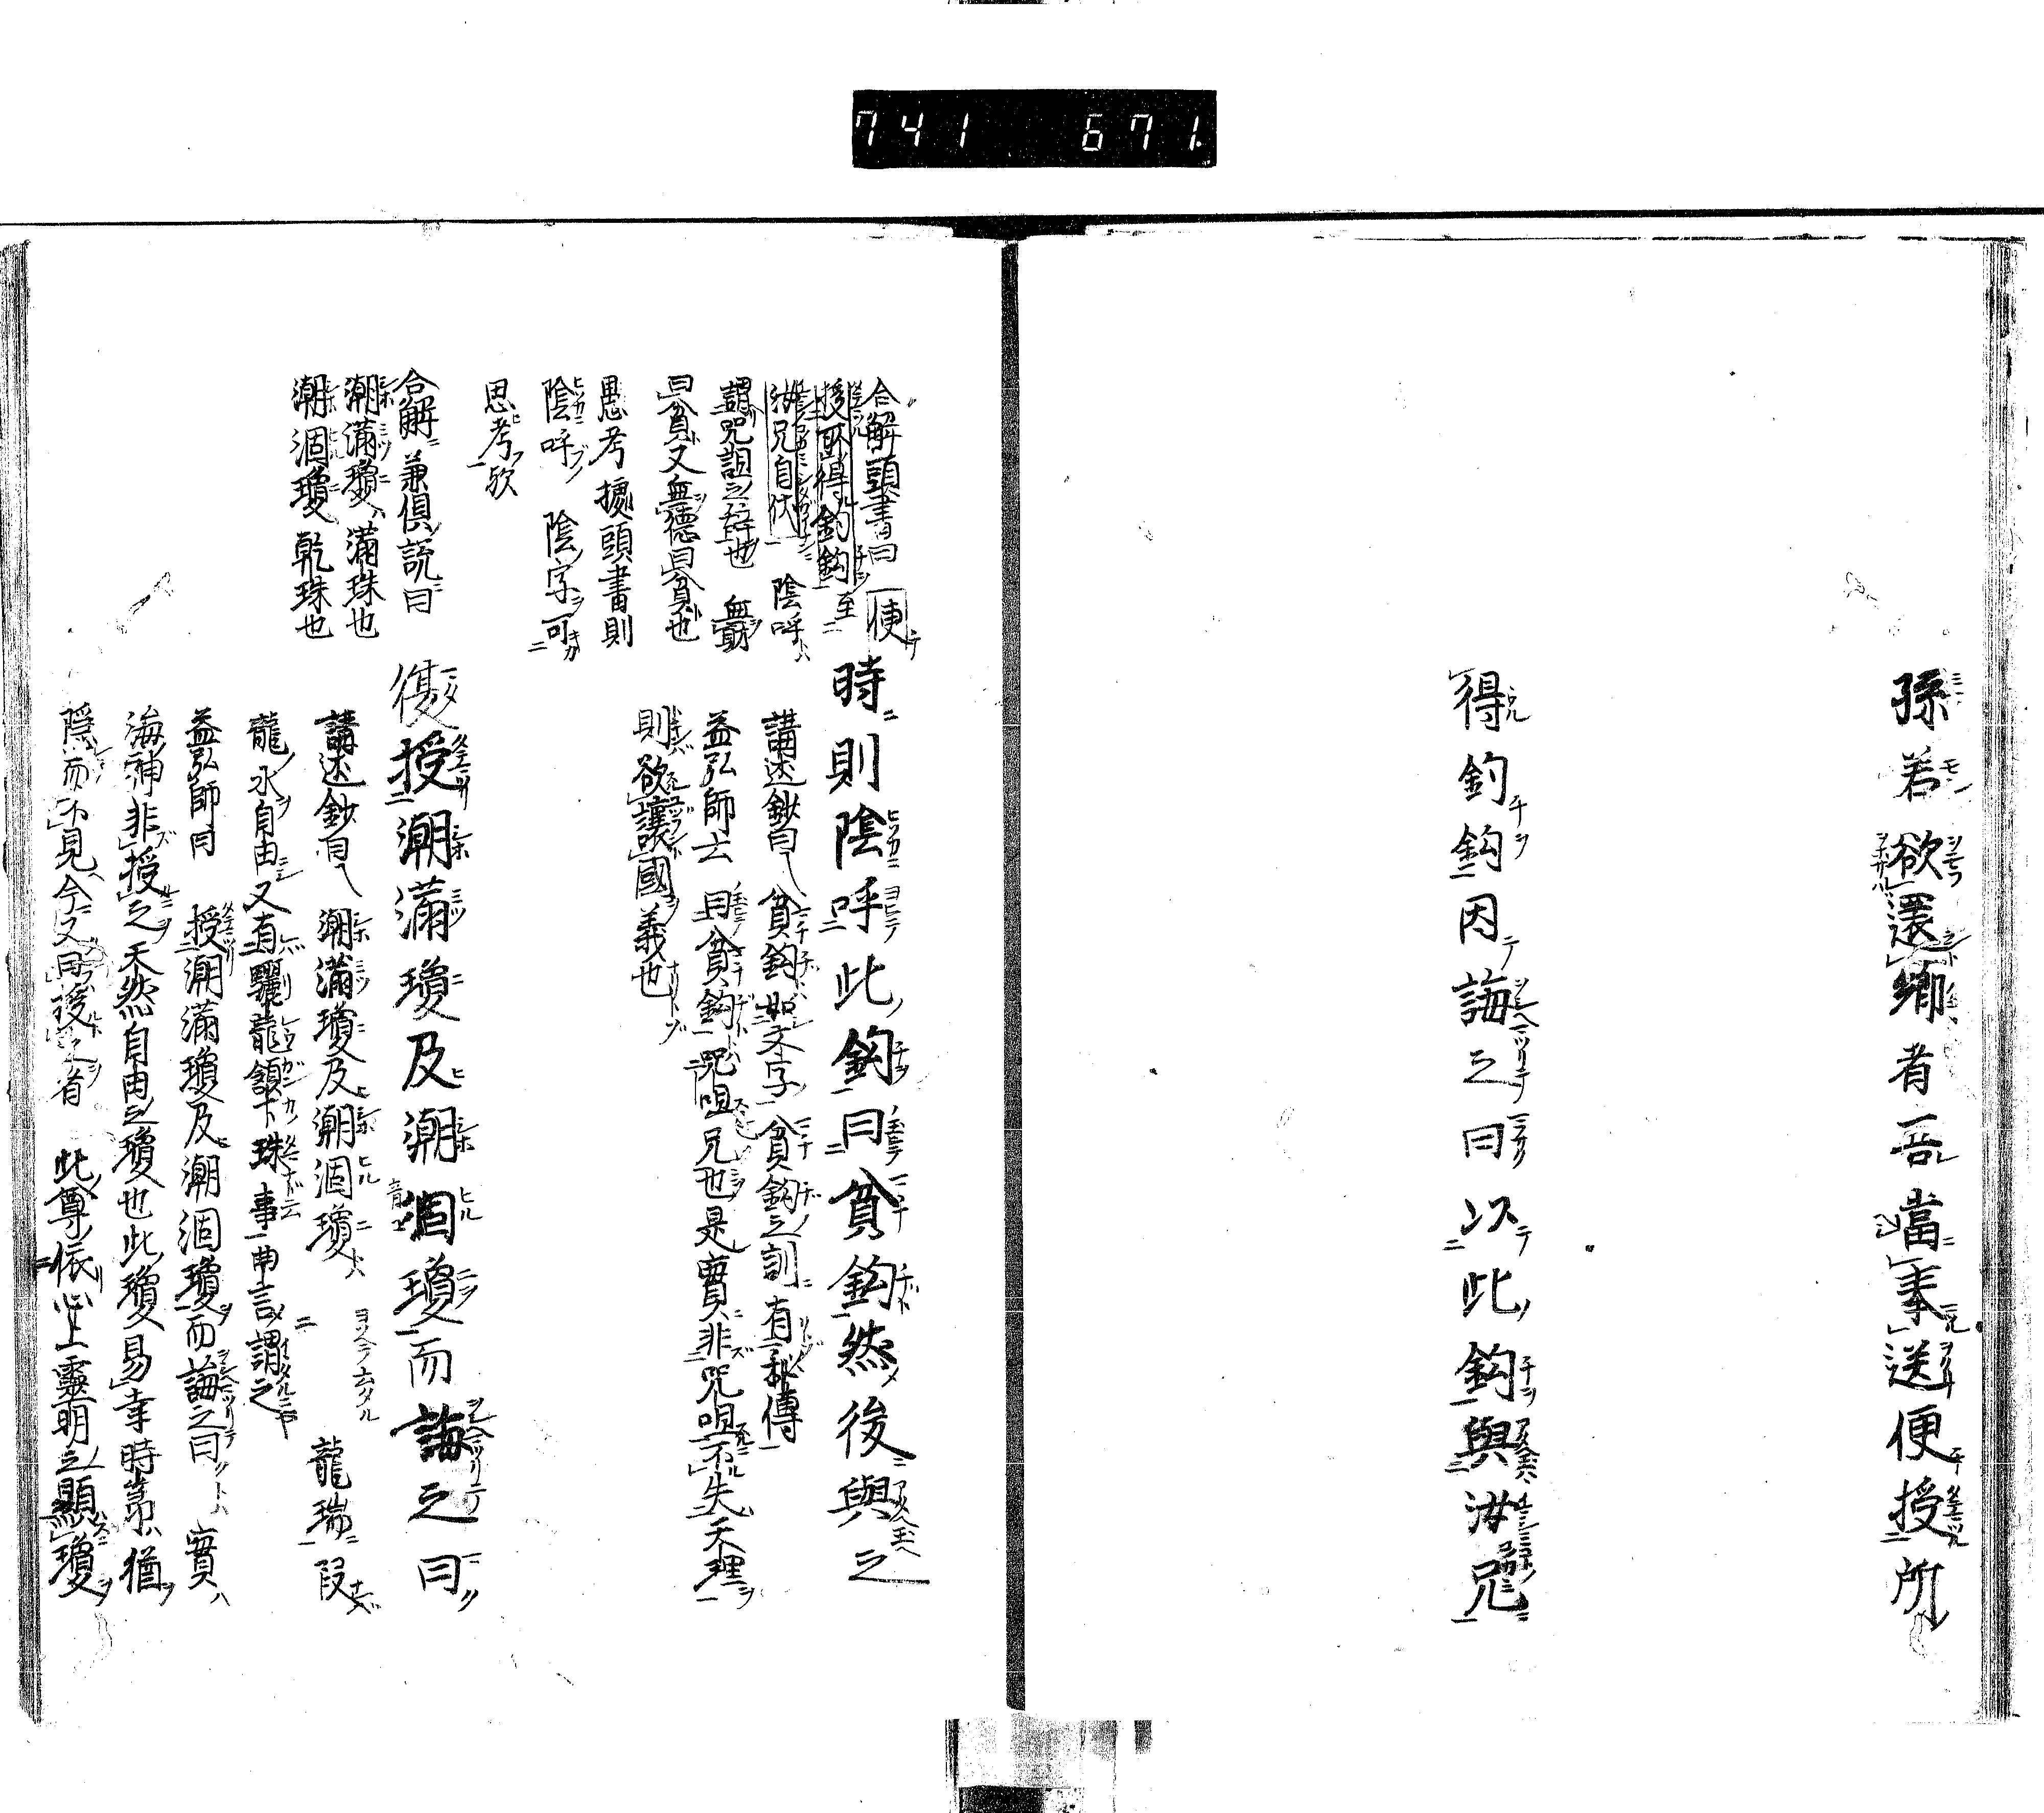 741 671
孫若欲還郷者吾當奉送便授所
得釣鈎因誨之曰以此鈎與汝兄
合解頭書曰 便
授所得釣鈎至
汝兄自伏 陰呼
謂咒詛之辞也 無財
曰貧又無德曰貧也
愚考據頭書則
陰呼 陰字可
思考欤
時則陰呼此鈎曰貧鈎然後與之
講述鈔曰 貧鈎如文字 貧鈎之訓有秘傳
益弘師云 曰貧鈎 咒咀兄也是實非咒咀不失天理
則欲讓國義也
合解 兼倶説曰
潮滿瓊 滿珠也
潮涸瓊 乾珠也
復授潮滿瓊及潮涸瓊而誨之曰
講述鈔曰 潮滿瓊及潮涸瓊 龍瑞段
龍水自由又有驪龍頷下珠事 曲言謂之
益弘師曰 授潮滿瓊及潮涸瓊而誨之曰 實
海神非授之天然自由之瓊也此瓊易幸時第猶
隠而不見今又曰授之者 此尊依心上靈明之顯瓊